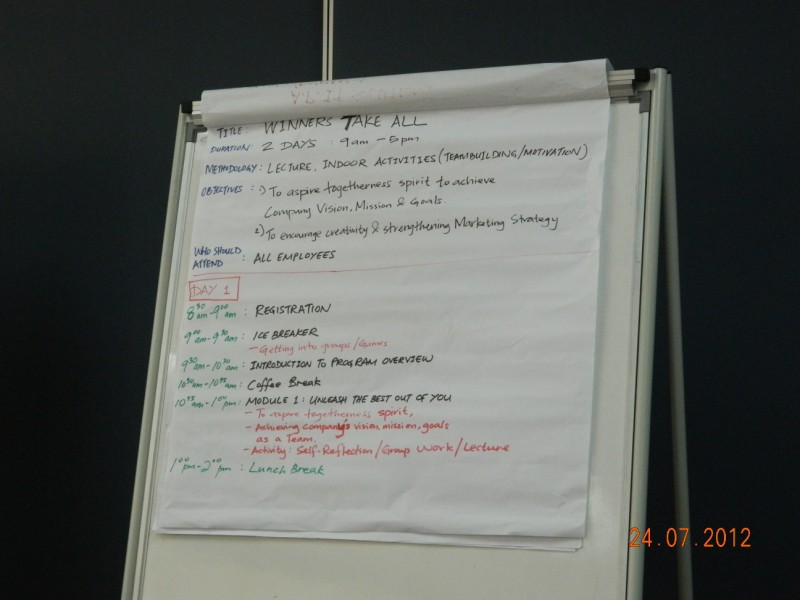 TITLE: WINNERS TAKE ALL
DURATION: 2 DAYS : 9am - 5pm
METHODOLOGY: LECTURE, INDOOR ACTIVITIES (TEAMBUILDING/MOTIVATION)
OBJECTIVES : 1) To aspire togetherness spirit to achieve
Company Vision, Mission & Goals.
2) To encourage creativity & strengthening Marketing Strategy
WHO SHOULD
ATTEND : ALL EMPLOYEES
DAY 1
8 30 am - 9 00 am : REGISTRATION
9 00 am - 9 30 am : ICE BREAKER
- Getting into groups/Games
9 30 am - 10 30 am : INTRODUCTION TO PROGRAM OVERVIEW
10 30 am - 10 45 am : Coffee Break
10 45 am - 1 00 pm : MODULE 1 : UNLEASH THE BEST OUT OF YOU
- To aspire togetherness spirit,
- Achieving company's vision, mission, goals
as a Team.
- Activity : Self-Reflection/Group Work/Lecture
1 00 pm - 2 00 pm : Lunch Break
24.07.2012